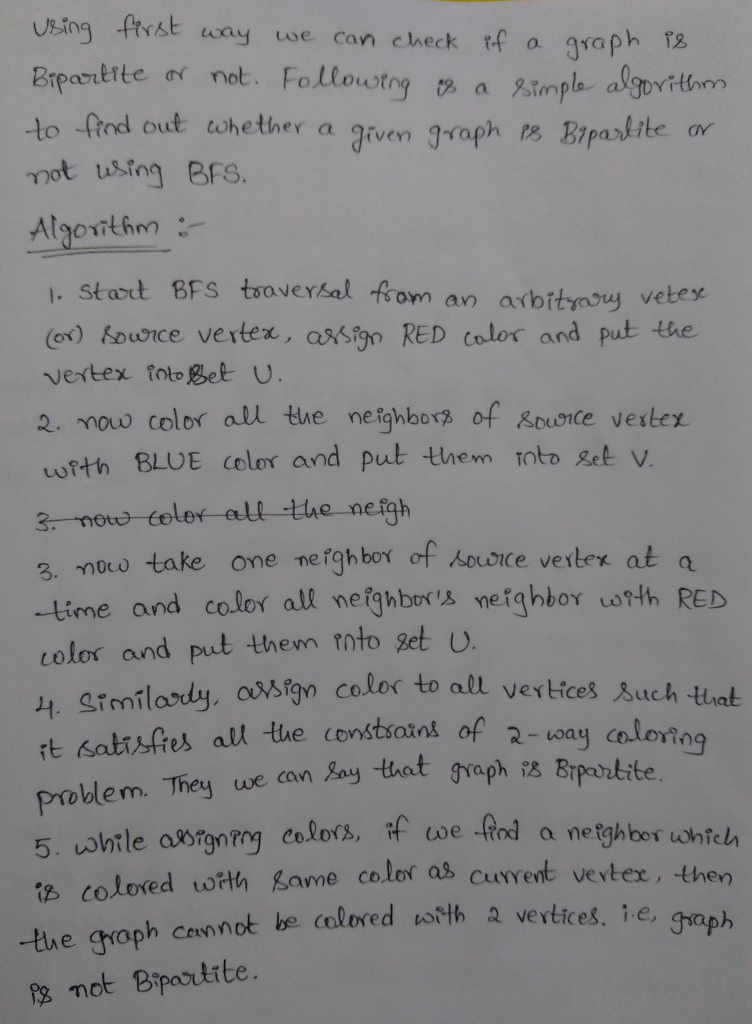 Using first way we can check if a graph is
Bipartite or not. Following is a simple algorithm
to find out whether a given graph is Bipartite or
not using BFS.
Algorithm :-
1. Start BFS traversal from an arbitrary vetex
(or) source vertex, assign RED color and put the
vertex into set U.
2. now color all the neighbors of source vertex
with BLUE color and put them into set V.
3. now color all the neigh
3. now take one neighbor of source vertex at a
time and color all neighbor's neighbor with RED
color and put them into set U.
4. Similarly, assign color to all vertices such that
it satisfies all the constrains of 2-way coloring
problem. They we can say that graph is Bipartite.
5. while assigning colors, if we find a neighbor which
is colored with same color as current vertex, then
the graph cannot be colored with 2 vertices. i.e, graph
is not Bipartite.